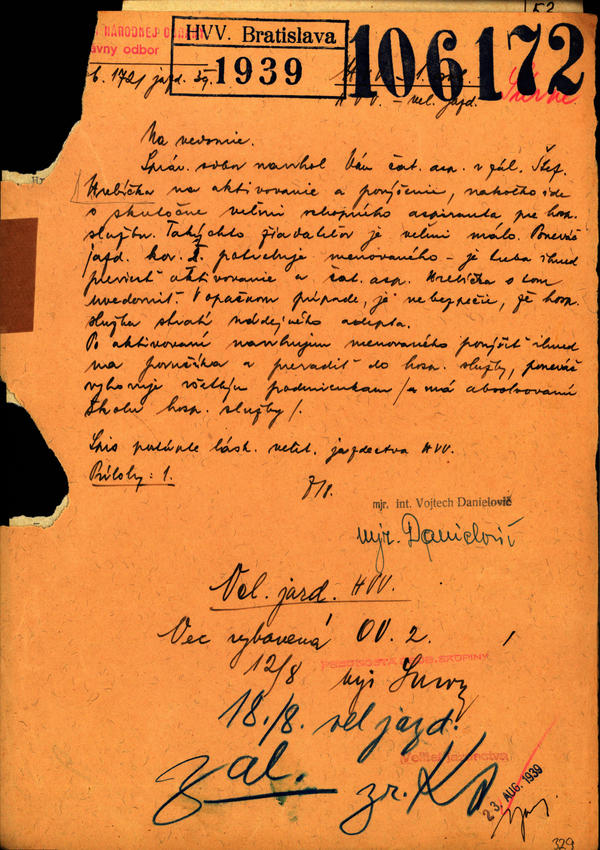 52
NÁRODNEJ
ávny odbor
HVV. Bratislava
1939
106172
172/ jazd. 39.
HVV. – vel. jazd.
Na vedomie.
Správ. sbor navrhol Vám čat. asp. v zál. Štef.
Hrebíčka na aktivovanie a povýšenie, nakoľko ide
o skutočne veľmi schopného aspiranta pre hosp.
službu. Takýchto žiadateľov je veľmi málo. Poneváč
jazd. kor. I. potrebuje menovaného – je treba ihneď
previesť aktivovanie a čat. asp. Hrebíčka o tom
uvedomiť. V opačnom prípade, je nebezpečie, že hosp.
služba stratí nádejného adepta.
Po aktivovaní navrhujem menovaného povýšiť ihneď
na poručíka a preradiť do hosp. služby, poneváč
vyhovuje všetkým podmienkam /a má absolvovanú
školu hosp. služby/.
Spis postúpte lásk. velit. jazdectva HVV.
Prílohy: 1.
mjr. int. Vojtech Danielovič
mjr. Danielovič
Vel. jazd. HVV.
Vec vybavená OV. 2.
12/8
PREDNOSTA OSOB. SKUPINY
18./8. vel jazd.
Veliteľ jazdectva
zal.
23. AUG. 1939
329